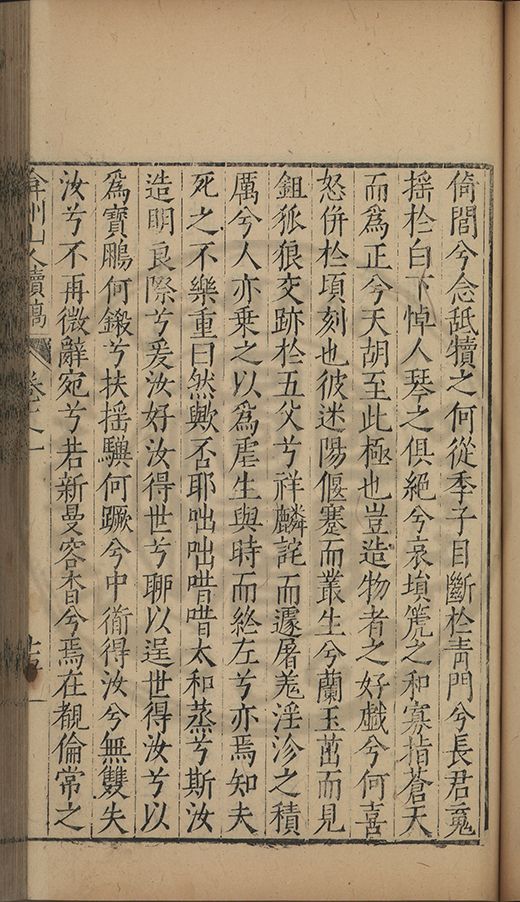 倚閭兮念舐犢之何從季子目斷於青門兮長君䰟
搖於白下悼人琴之俱絕兮哀塤箎之和寡指蒼天
而為正兮天胡至此極也豈造物者之好戲兮何喜
怒併於頃刻也彼迷陽偃蹇而叢生兮蘭玉茁而見
鉏狐狼交跡於五父兮祥麟詫而遽屠羗淫沴之積
厲兮人亦乗之以為虐生與時而絵左兮亦焉知夫
死之不樂重曰然歟否耶咄咄唶唶太和蒸兮斯汝
造明良際兮爰汝好汝得世兮聊以逞世得汝兮以
為寶鵬何鎩兮扶搖驥何蹶兮中衢得汝兮無雙失
汝兮不再微辭宛兮若新曼容杳兮焉在覩倫常之
弇州山人續稿 卷之一